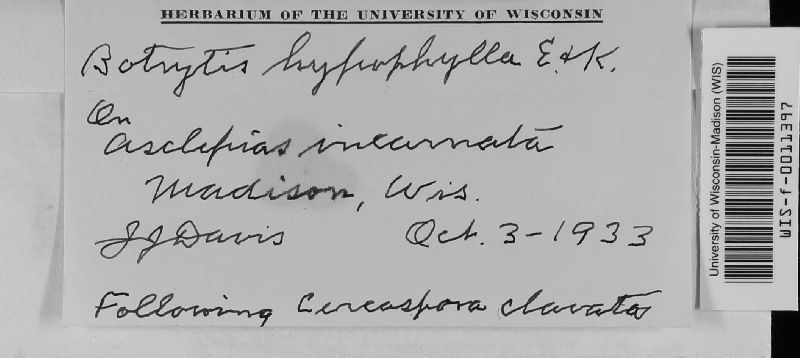 HERBARIUM OF THE UNIVERSITY OF WISCONSIN
Botrytis hypophylla E. & K.
On
Asclepias incarnata
Madison, Wis.
JJDavis Oct. 3-1933
Following Cercospora clavata
University of Wisconsin-Madison (WIS)
WIS-f-0011397